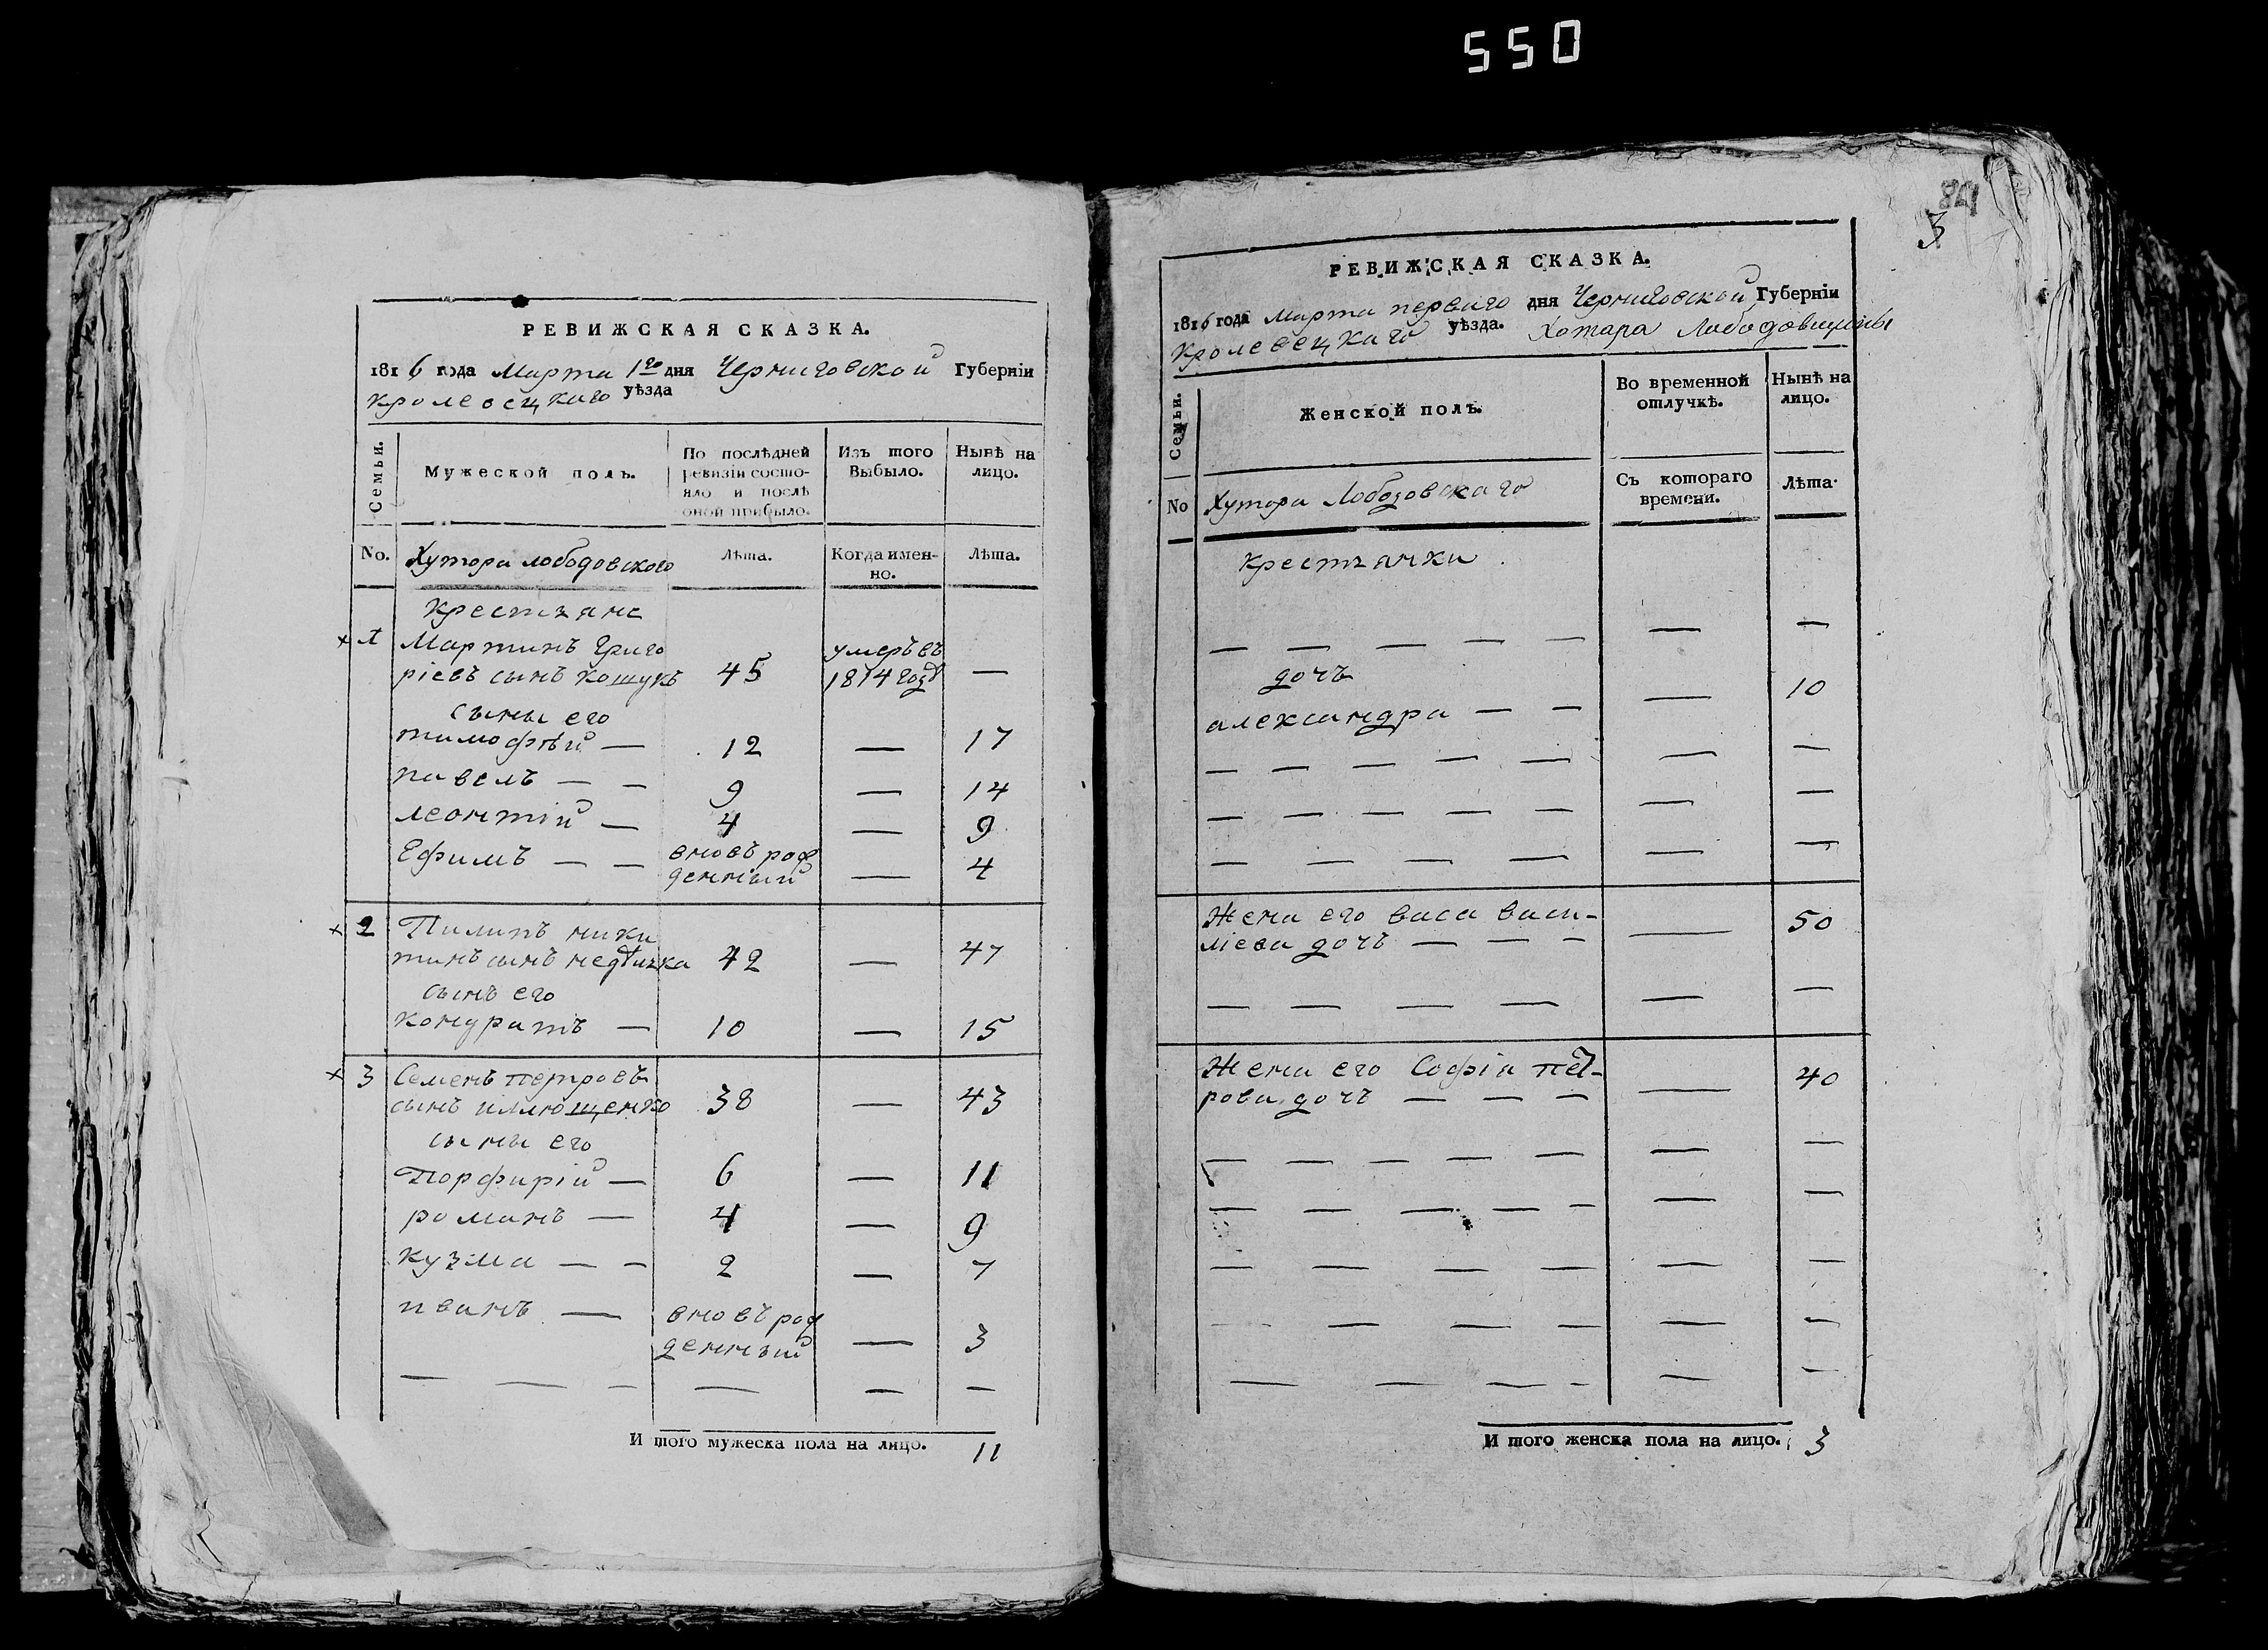 550
РЕВИЖСКАЯ СКАЗКА.
1816 года Марта 1го дня Черниговской Губерніи
Кролевецкаго уѣзда
Семьи.
Мужеской полъ.
По послѣдней ревизіи состояло и послѣ оной прибыло.
Изъ того Выбыло.
Нынѣ на лицо.
No.
Хутора лободовского
Лѣта.
Когда именно.
Лѣта.
крестъяне
1 Мартинъ Григо
ріевъ сынъ кошукъ 45 умеръ въ 1814 годѣ —
сыны его
тимофѣй — 12 — 17
павелъ — — 9 — 14
леонтій — 4 — 9
Ефимъ — — вновь рож
денный — 4
2 Пилипъ ники
тинъ сынъ 42 — 47
сынъ его
кондратъ — 10 — 15
3 Семенъ петровъ
сынъ иллющенко 38 — 43
сыны его
Порфирій — 6 — 11
романъ — 4 — 9
кузма — — 2 — 7
иванъ — вновь рож
денный — 3
— — — — — —
И того мужеска пола на лицо. 11
84
3
РЕВИЖСКАЯ СКАЗКА.
1816 года Марта перваго дня Черниговской Губерніи
Кролевецкаго уѣзда. Хотара Лободовщины
Семьи.
Женской полъ.
Во временной отлучкѣ.
Нынѣ на лицо.
No
Хутора Лободовскаго
Съ котораго времени.
Лѣта.
крестъянки
— — — — — — —
дочь
александра — — — 10
— — — — — — —
— — — — — — —
— — — — — —
Жена его васа васи-
ліева дочь — — — — 50
— — — — — —
Жена его Софія пет-
рова дочь — — — — 40
— — — — — — —
— — — — — — —
— — — — — —
— — — — — —
— — — — — —
И того женска пола на лицо. 3